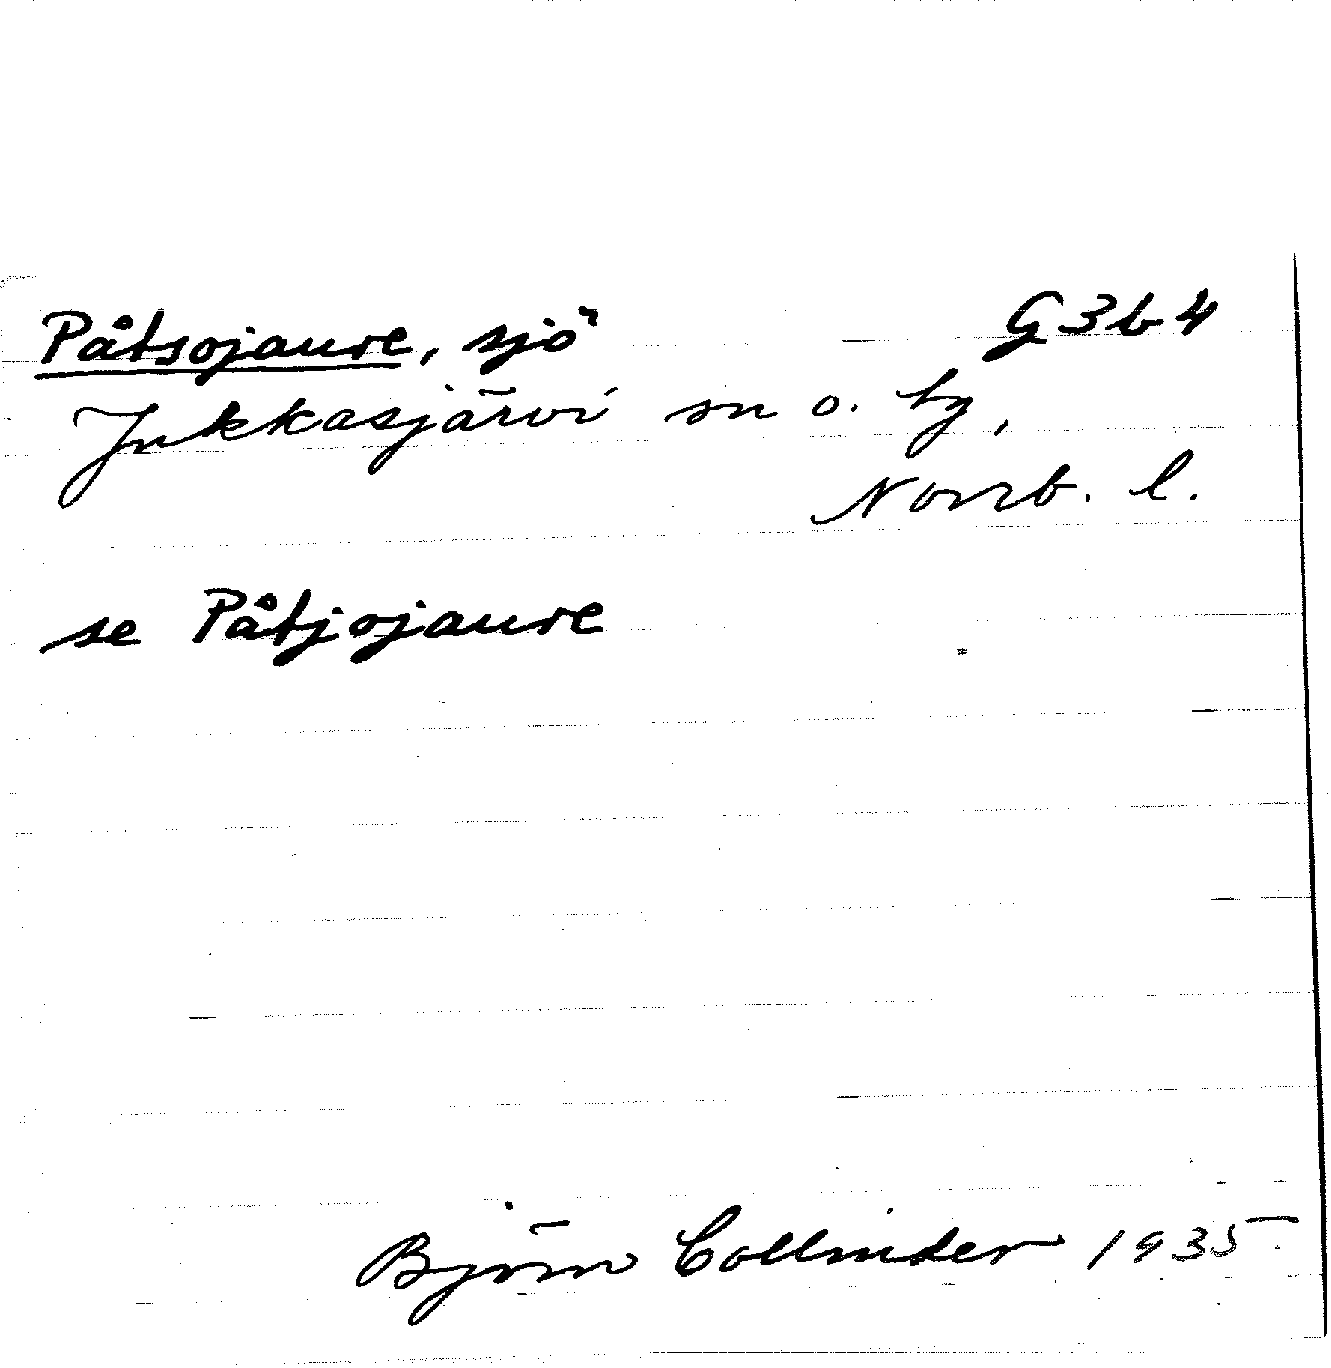 Påtsojaure, sjö G3b4
Jukkasjärvi sn o. by,
Norrb. l.
se Påtjojaure
Björn Collinder 1935